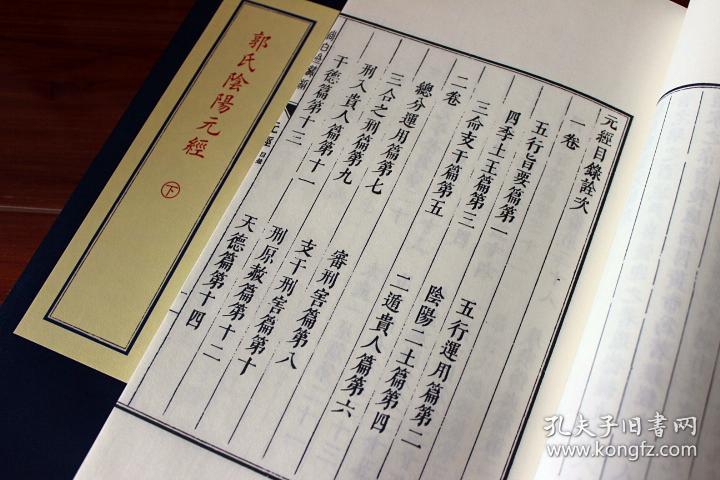 郭氏陰陽元經
下
元經目錄詮次
一卷
五行旨要篇第一
五行運用篇第二
四季土王篇第三
陰陽二土篇第四
三命支干篇第五
二遁貴人篇第六
二卷
總分運用篇第七
審刑害篇第八
三合之刑篇第九
支干刑害篇第十
刑入貴人篇第十一
刑原赦篇第十二
干德篇第十三
天德篇第十四
元經
目錄
孔夫子旧書网
©kongfz.com
©kongfz.com